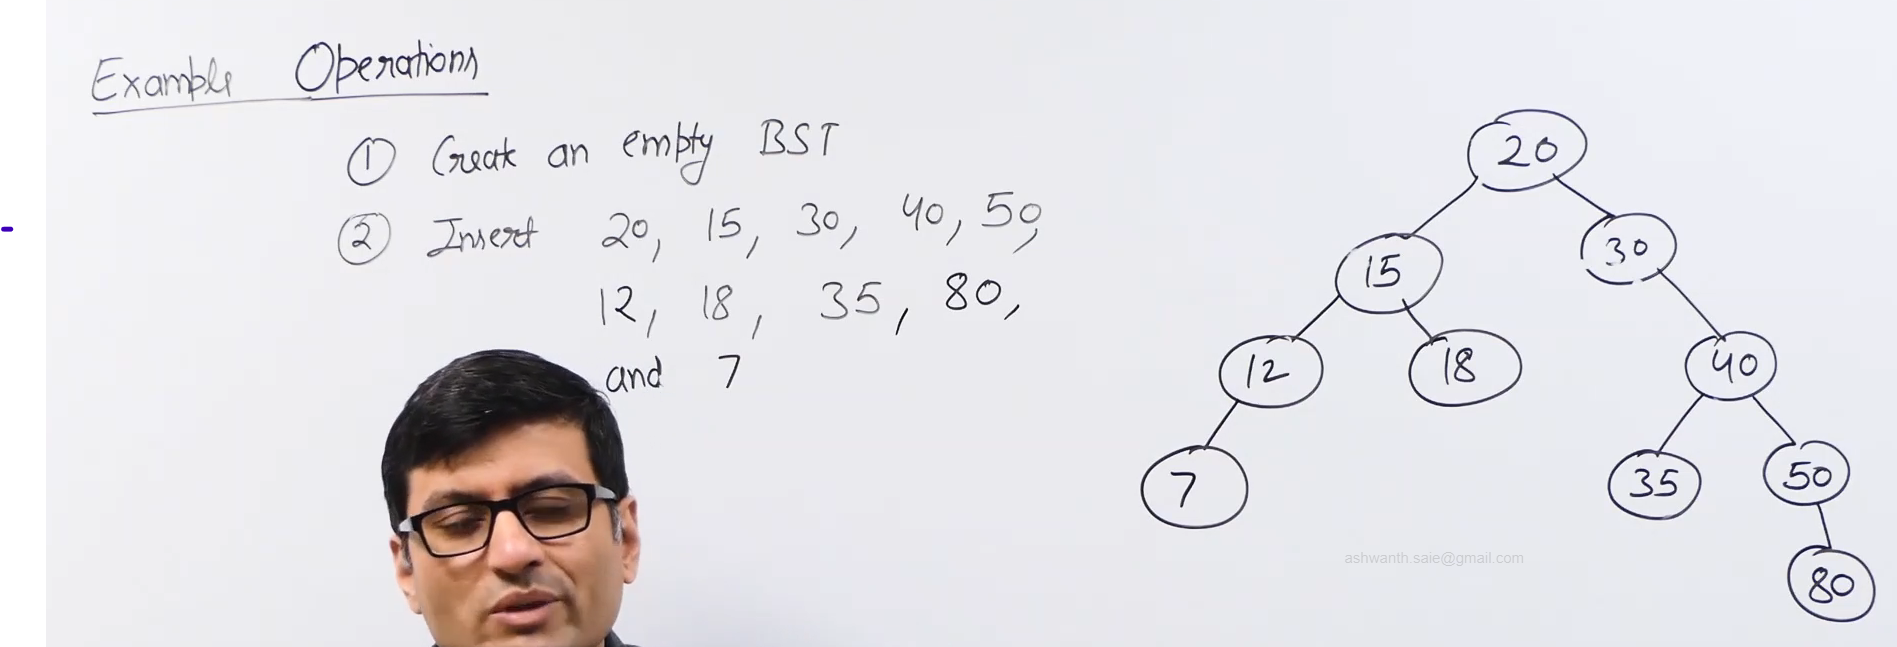 Example Operations
① Create an empty BST
② Insert 20, 15, 30, 40, 50,
12, 18, 35, 80,
and 7
20
15
30
12
18
40
7
35
50
80
ashwanth.saie@gmail.com